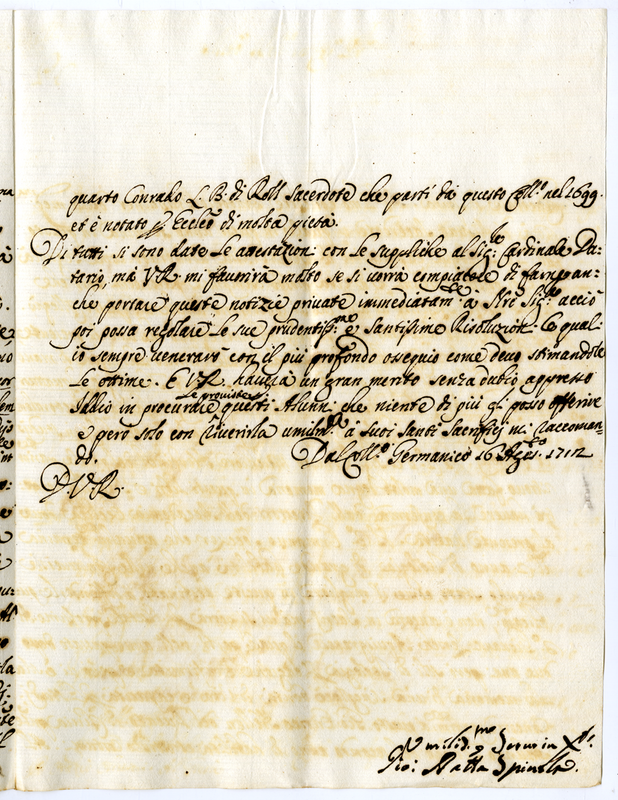 quarto Conrado L. B. di Roll Sacerdote che partì da questo Coll.o nel 1699.
et è notato p Eccleo di molta pietà.
Di tutti si sono date le attestazion: con le suppliche al Sig.re Cardinale Da-
tario, mà VR mi favorirà molto se si vorrà compiacere di farne an-
che portare queste notizie private immediatam.te a Sig.re acciò
poi possa regolare le sue prudentiss.me e Santissime Risoluzion. le qual-
io sempre venerarò con il più profondo osequio come devo stimandole
le ottime. E VR haverà un gran merito senza dubio appresso
Iddio in procurare le proviste questi Alunni che niente di più gl. posso offerire
e però solo con riverirla umilm.te à suoi Santi Sacrificij mi raccoman-
do. Dal Coll.o Germanico 16 Agos.to 1712
D. V. R.
Umilid.mo Servo in X.to
Gio: Batta Spinola.